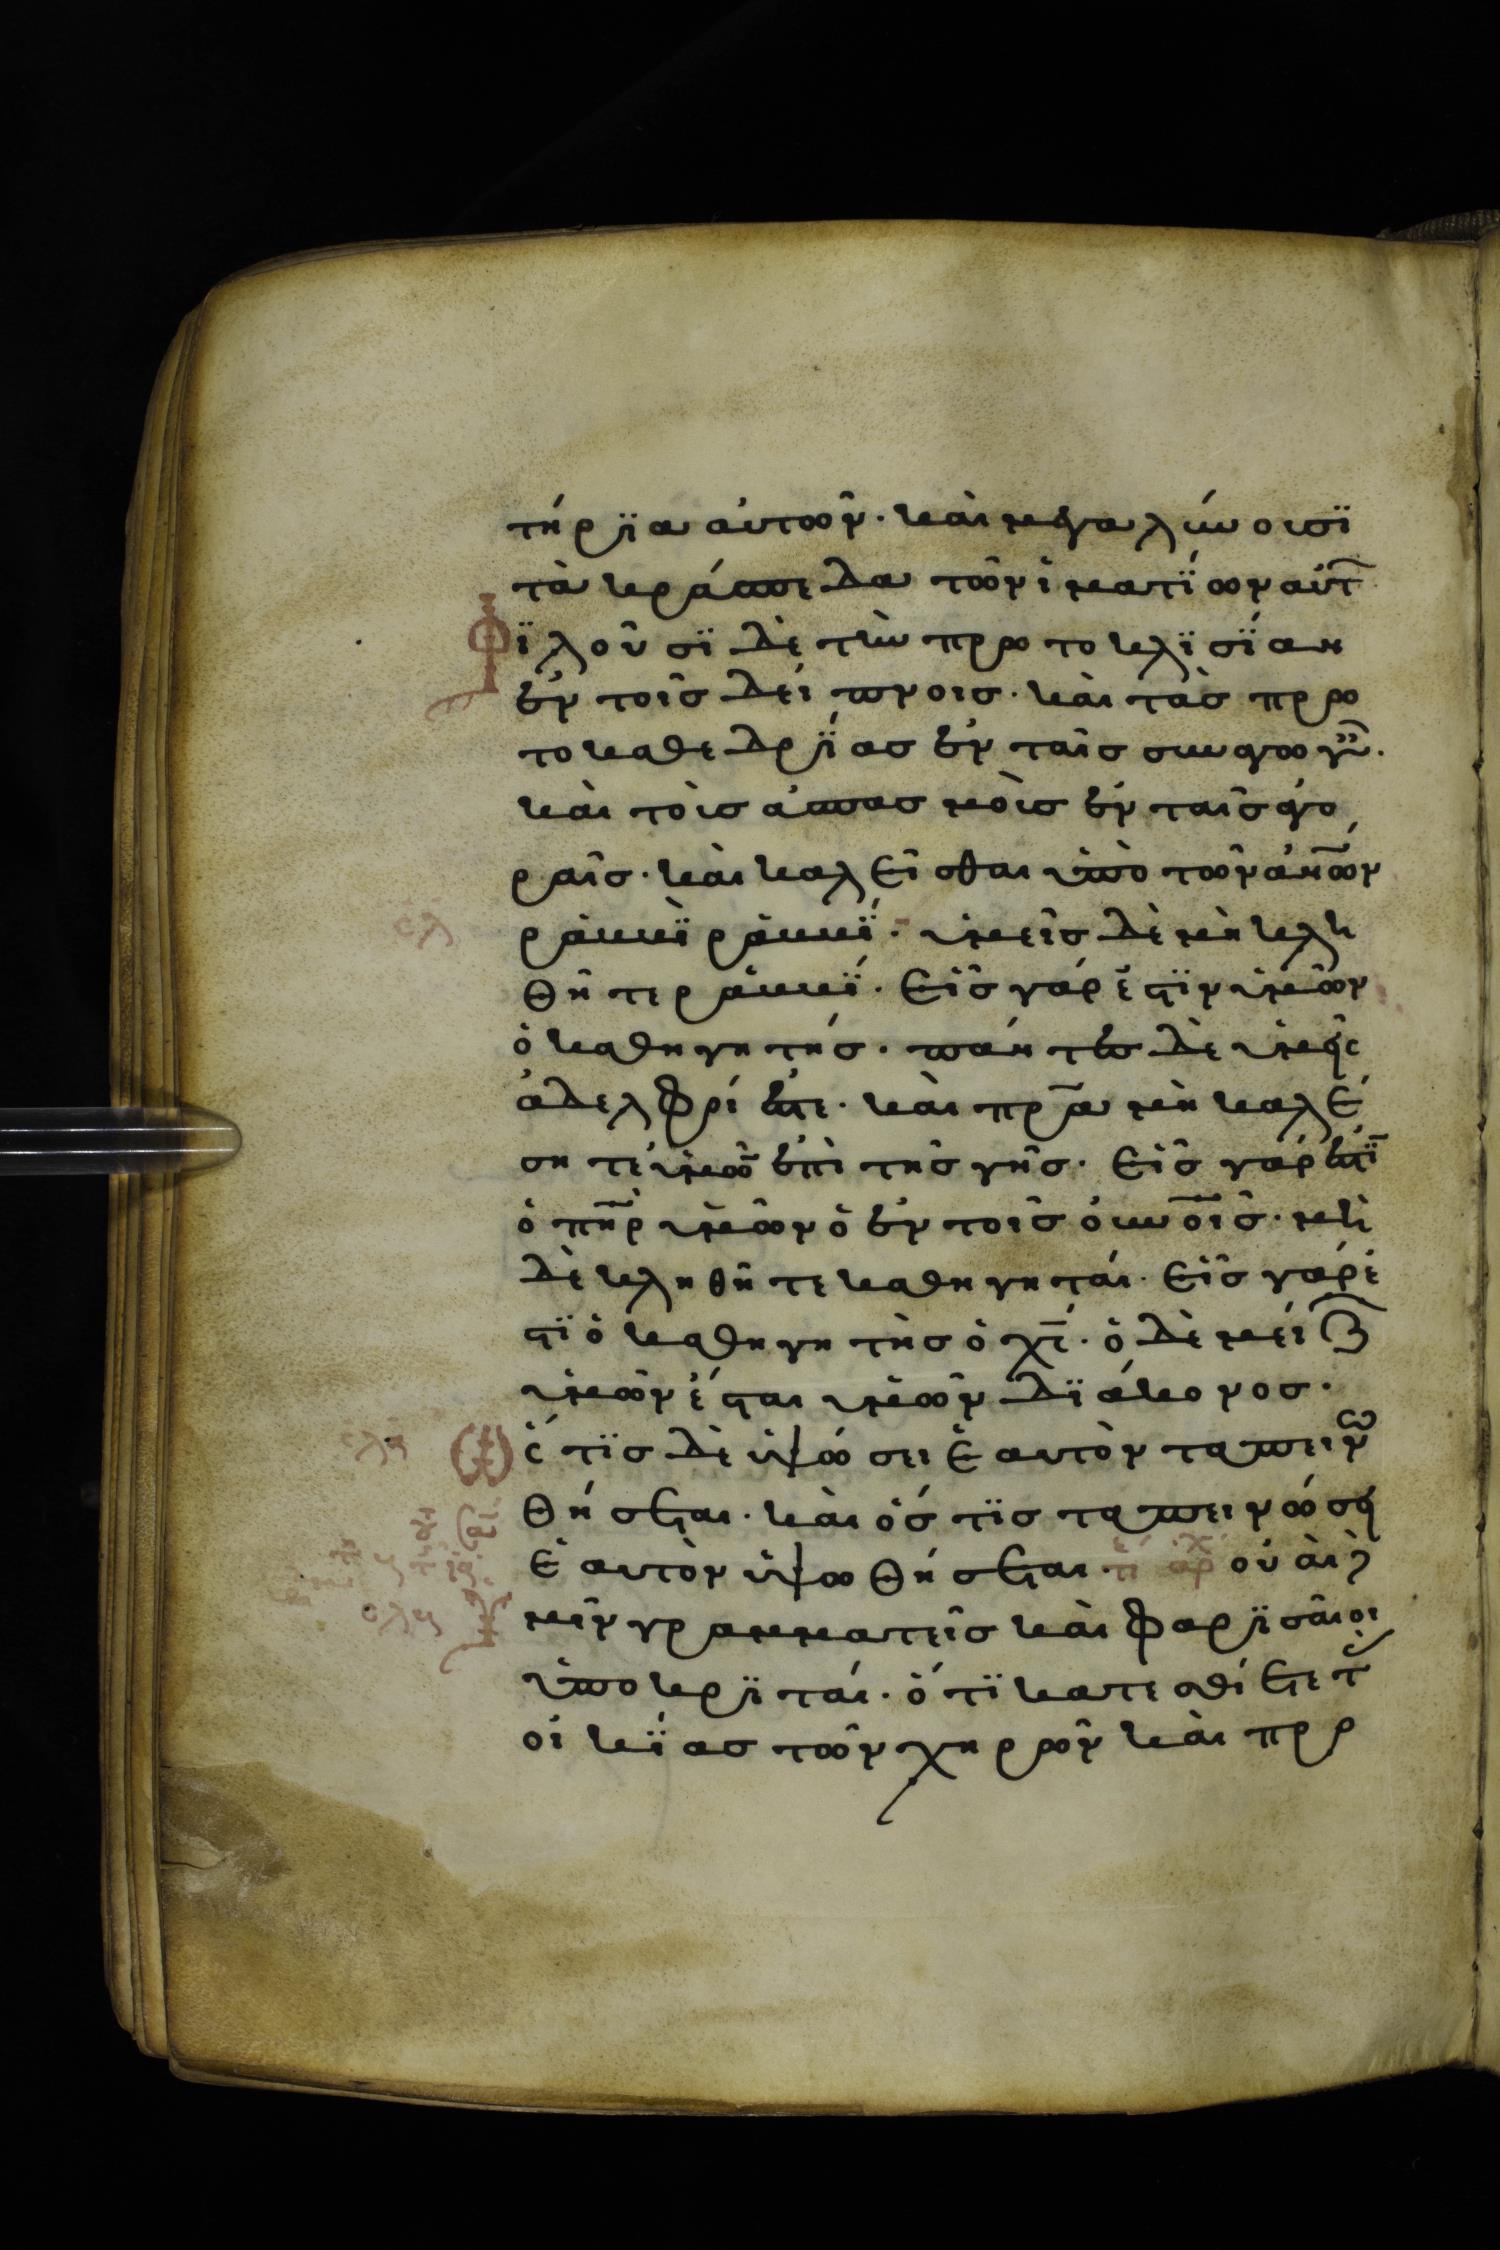 τήρϊα αὐτῶν· καὶ μεγαλύνουσϊ
τὰ κράσπεδα τῶν ἱματΐων αὐτ
Φϊλοῦσϊ δὲ τὴν πρωτοκλϊσΐαν
ἐν τοῖς δείπνοις· καὶ τὰς πρω
τοκαθεδρΐας ἐν ταῖς συναγωγ·
καὶ τοὺς ἀσπασμοὺς ἐν ταῖς ἀγο
ραῖς· καὶ καλεῖσθαι ὑπὸ τῶν ἀνων
ράββϊ ράββΐ· ὑμεῖς δὲ μὴ κλη
θῆτε ραββΐ· εἷς γάρ ἐστϊν ὑμῶν
ὁ καθηγητής· πάντες δὲ ὑμεῖς
ἀδελφοί ἐστε· καὶ πρα μὴ καλέ
σητε ὑμῶ ἐπὶ τῆς γῆς· εἷς γάρ ἐστϊ
ὁ πηρ ὑμῶν ὁ ἐν τοῖς οὐνοῖς· μὴ
δὲ κληθῆτε καθηγηταί· εἷς γάρ ἐ
στϊ ὁ καθηγητὴς ὁ χς· ὁ δὲ μείζ
ὑμῶν ἔσται ὑμῶν δϊάκονος·
ὅστϊς δὲ ὑψώσει ἑαυτὸν ταπεινω
θήσεται· καὶ ὅστϊς ταπεινώσει
ἑαυτὸν ὑψωθήσεται· οὐαὶ
μῖν γραμματεῖς καὶ Φαρϊσαῖοι
ὑποκρϊταί· ὅτϊ κατεσθίετε τ
οἰκΐας τῶν χηρῶν καὶ προ